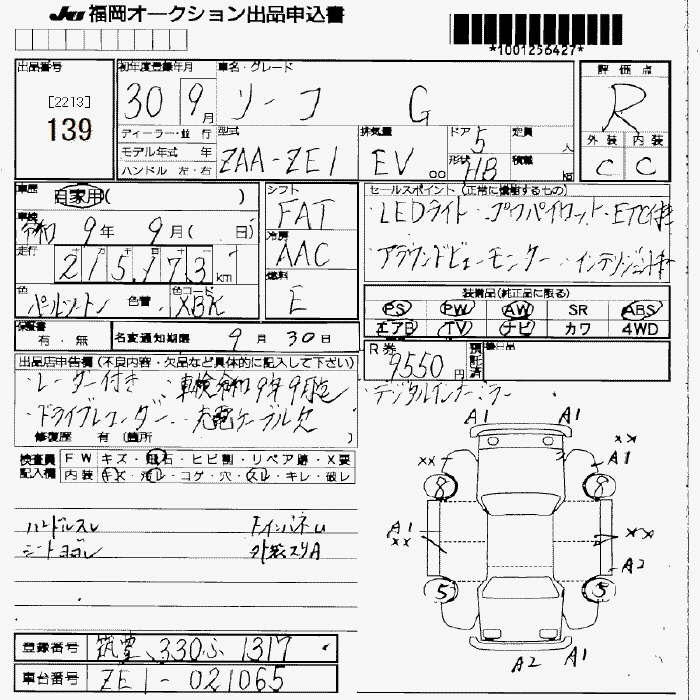 JU 福岡オークション出品申込書
*1001256427*
出品番号 初年度登録年月 車名・グレード 評価点
[2213] 30 9月 リーフ G R
139
ディーラー・並行 型式 排気量 ドア 5 定員 人 外装 内装
モデル年式 年 ZAA-ZE1 EV cc 形状 HB 積載 kg C C
ハンドル 左・右
車歴 シフト セールスポイント (正常に機能するもの)
自家用( ) FAT ・LEDライト・プロパイロット・ETC付
車検 冷房
令和 9年 9月( 日) AAC アラウンドビューモニター・インテリジェントキー
走行 215,173km 燃料
色 色替 色コード E 装備品(純正品に限る)
パールツートン XBK PS PW AW SR ABS
エアB TV ナビ カワ 4WD
保証書 有・無 名変通知期限 9月30日 R券 9550円 預託済
出品店申告欄(不良内容・欠品など具体的に記入して下さい) ・デジタルインナーミラー
・レーダー付き ・車検令和9年9月迄
・ドライブレコーダー ・充電ケーブル欠
修復歴 有 (箇所 )
検査員 FW キズ・飛石・ヒビ割・リペア跡・X要
記入欄 内装 キズ・汚レ・コゲ・穴・スレ・キレ・破レ
ハンドルスレ インパネU
シートヨゴレ 外装スリA
A1 A1
xx xx A1
8 8
A1 xx xx
A2
5 5
A2 A1
登録番号 筑豊 330ふ1317
車台番号 ZE1-021065